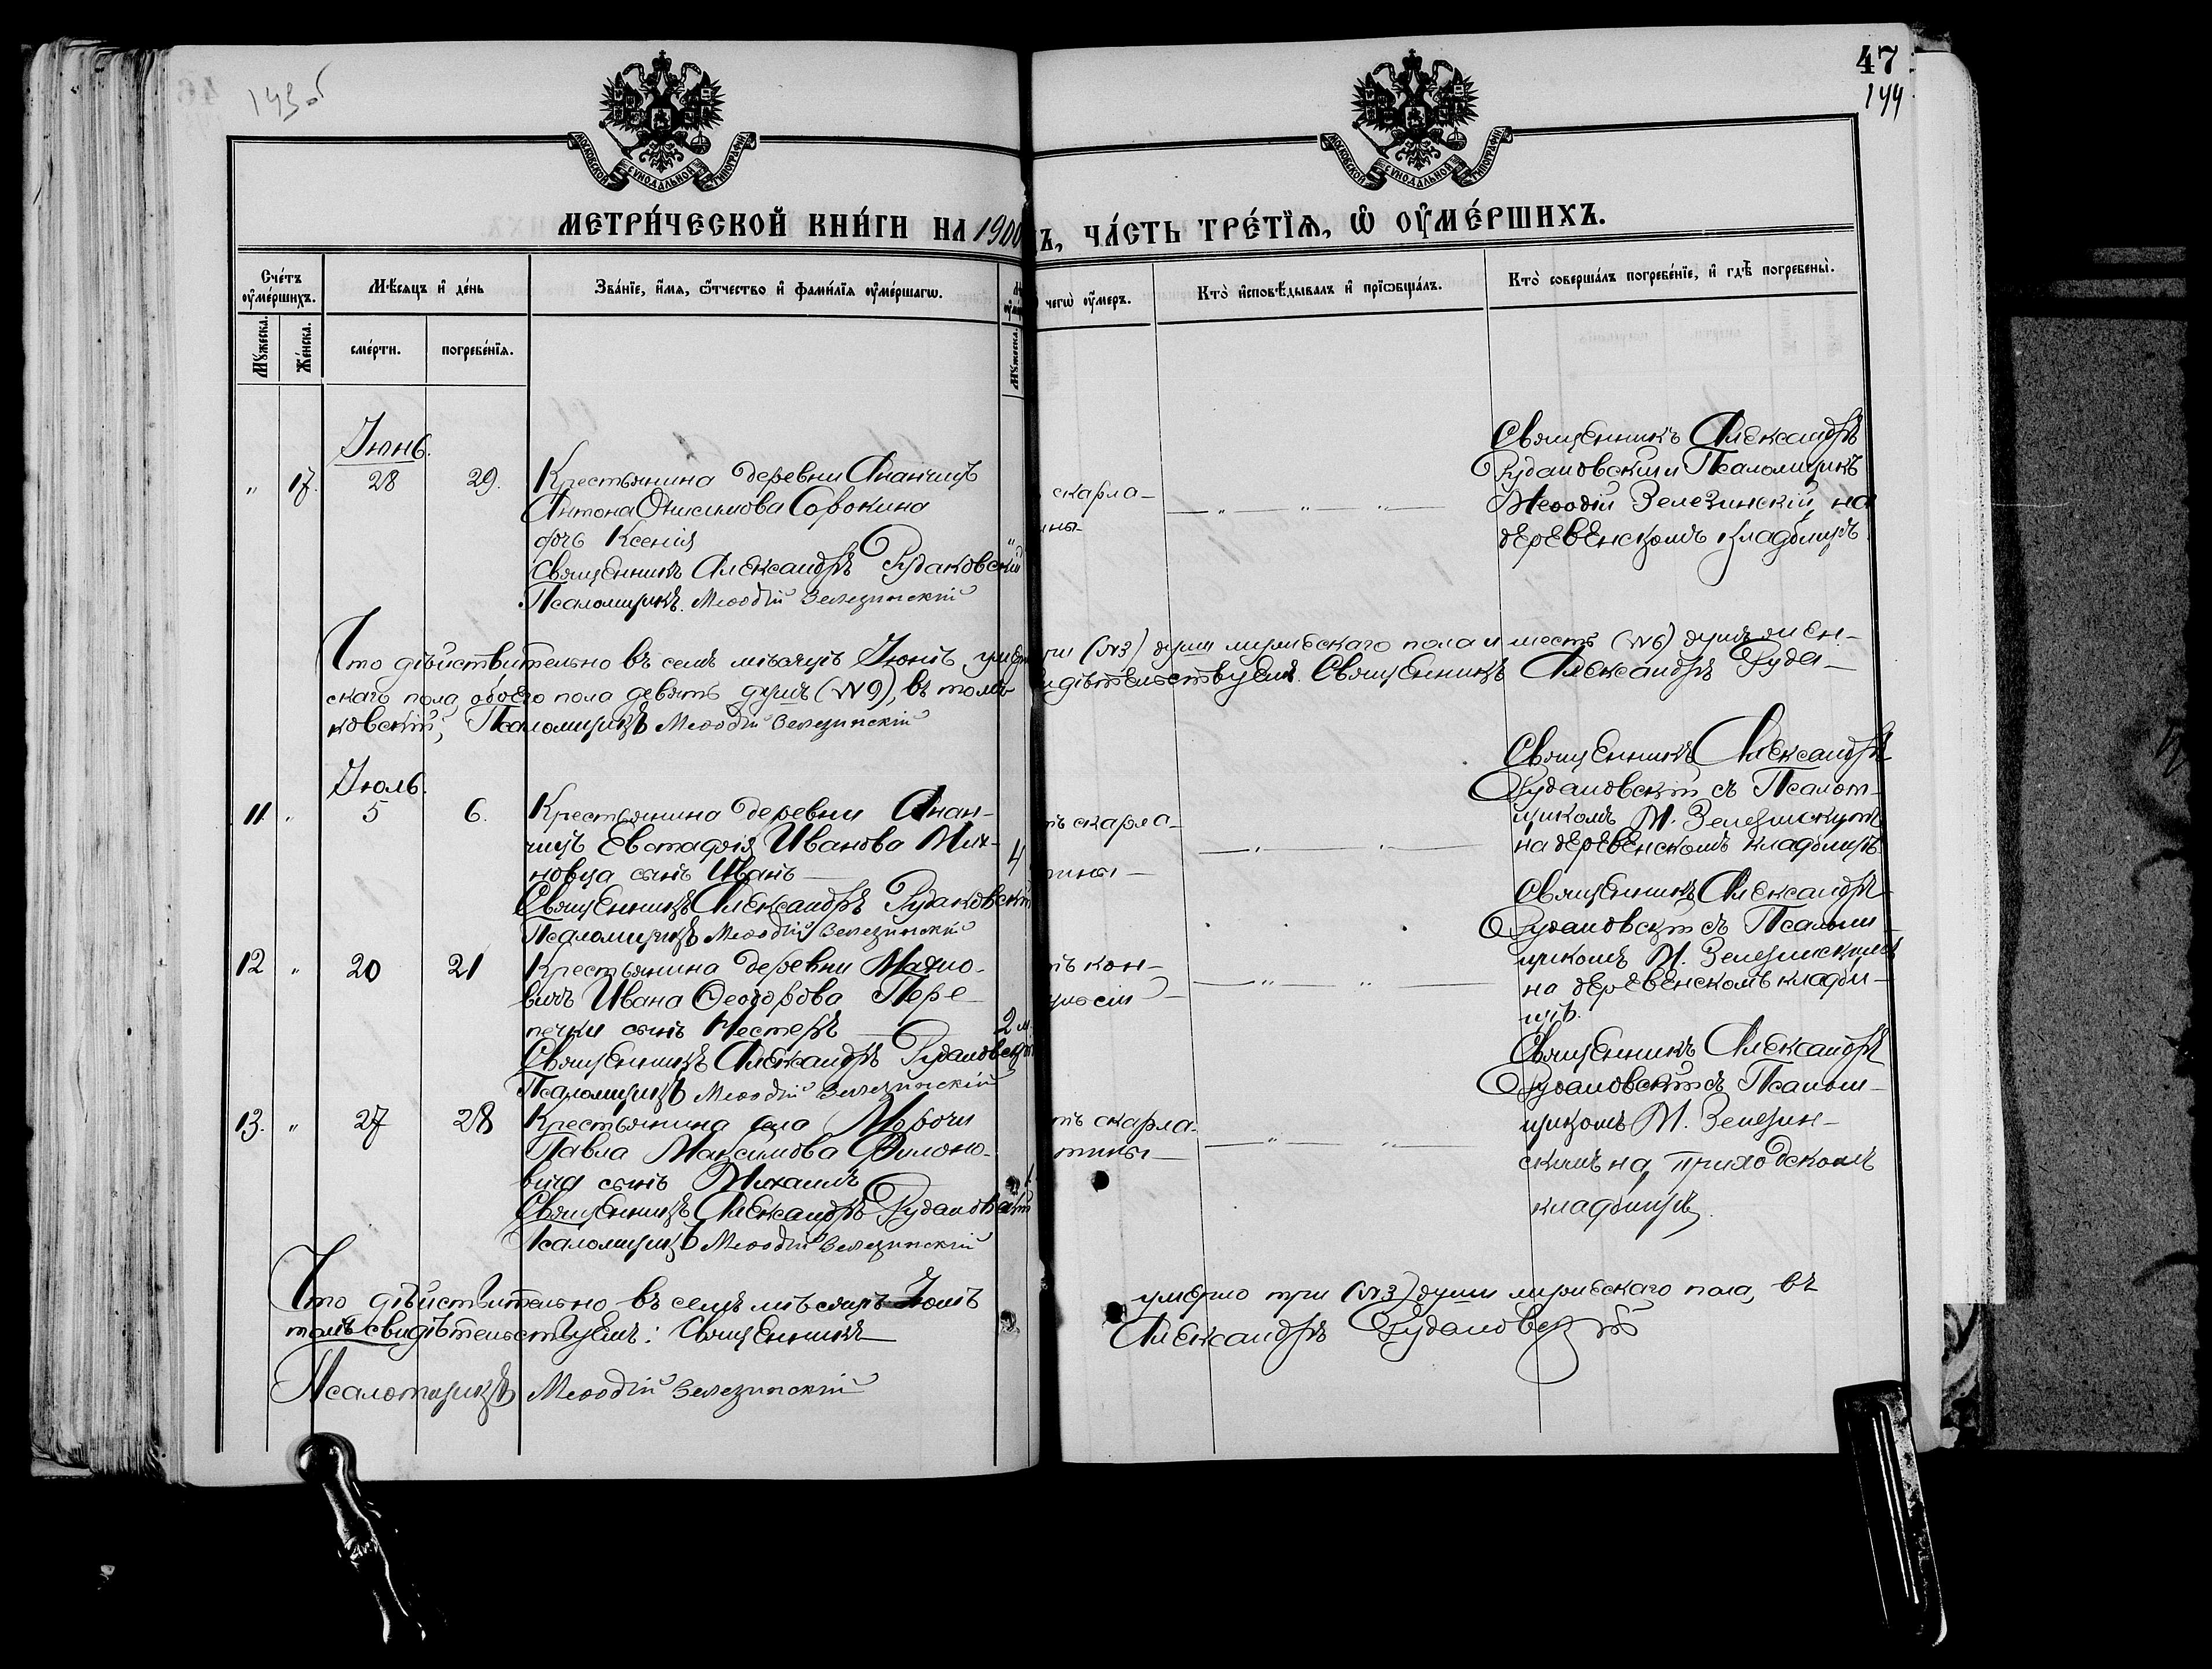 143об
47
144
МОСКОВСКОЙ СѴНОДАЛЬНОЙ ТИПОГРАФІИ
МОСКОВСКОЙ СѴНОДАЛЬНОЙ ТИПОГРАФІИ
МЕТРИ́ЧЕСКОЙ КНИ́ГИ НА 1900
Ъ, ЧА́СТЬ ТРЕ́ТЇѦ, Ѡ҆ ОУ҆МЕ́РШИХЪ.
Сче́тъ оу҆ме́ршихъ.
Мѣ́сяцъ и҆ де́нь
Зва́нїе, и҆́мя, ѻ҆́тчество и҆ фами́лїя оу҆ме́ршагѡ.
чегѡ̀ оу҆́меръ.
Кто̀ и҆сповѣ́дывалъ и҆ прїѻбща́лъ.
Кто̀ соверша́лъ погребе́нїе, и҆ гдѣ̀ погребены̀.
Мꙋ́жеска.
Же́нска.
сме́рти.
погребе́нїя.
Мꙋ́жеска.
Іюнь.
" 17. 28 29. Крестьянина деревни Ананчицъ
Антона Онисимова Сорокина
дочь Ксенія
Священникъ Александръ Рудаковскій
Псаломщикъ Меѳодій Зелезинскій
скарла-
ины
Священникъ Александръ
Рудаковскій и Псаломщикъ
Меѳодій Зелезинскій, на
деревенскомъ кладбищѣ
Что дѣйствительно въ семъ мѣсяцѣ Іюнѣ умер
ри (№3) души мужескаго пола и шесть (№6) душъ жен-
скаго пола, обоего пола девять душъ (№9), въ томъ
идѣтельствуемъ. Священникъ Александръ Руда-
ковскій; Псаломщикъ Меѳодій Зелезинскій
Іюль.
11 " 5 6. Крестьянина деревни Анан-
чицъ Евстафія Иванова Мих-
новца сынъ Иванъ 4
Священникъ Александръ Рудаковскій
Псаломщикъ Меѳодій Зелезинскій
тъ скарла-
тины
Священникъ Александръ
Рудаковскій съ Псалом-
щикомъ М. Зелезинскимъ
на деревенскомъ кладбищѣ.
12 " 20 21 Крестьянина деревни Махно-
вичъ Ивана Ѳеодорова Пере-
печки сынъ Нестеръ 2 м.
Священникъ Александръ Рудаковскій
Псаломщикъ Меѳодій Зелезинскій
тъ кон-
ульсіи
Священникъ Александръ
Рудаковскій съ Псалом-
щикомъ М. Зелезинскимъ
на деревенскомъ кладби-
щѣ.
13. " 27 28 Крестьянина села Морочи
Павла Максимова Филоно-
вича сынъ Михаилъ
Священникъ Александръ Рудаковскій
Псаломщикъ Меѳодій Зелезинскій
тъ скарла-
тины
Священникъ Александръ
Рудаковскій съ Псалом-
щикомъ М. Зелезин-
скимъ на приходскомъ
кладбищѣ.
Что дѣйствительно въ семъ мѣсяцѣ Іюлѣ
умерло три (№3) души мужескаго пола, въ
томъ свидѣтельствуемъ: Священникъ
Александръ Рудаковскій
Псаломщикъ Меѳодій Зелезинскій